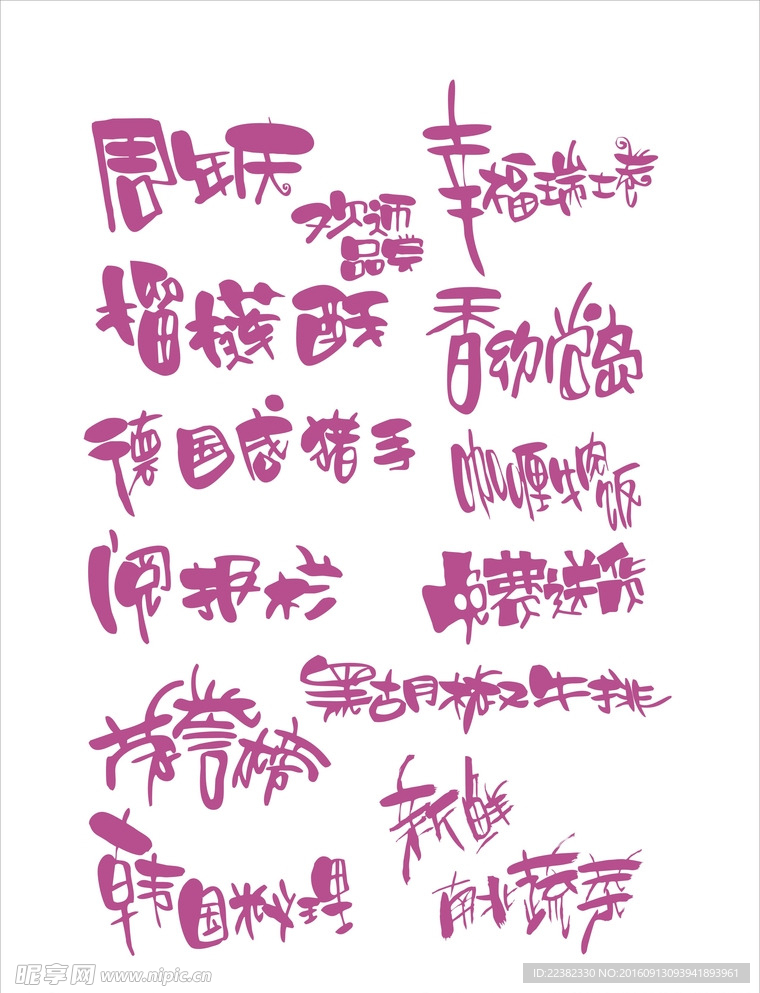 周年庆
欢迎
品尝
幸福瑞士卷
榴槤酥
香幼党岛
德国咸猪手
咖喱牛肉饭
阅报栏
免费送货
黑胡椒牛排
荣誉榜
新鲜
韩国料理
南北蔬菜
昵享网 www.nipic.cn
ID:22382330 NO:20160913093941893961